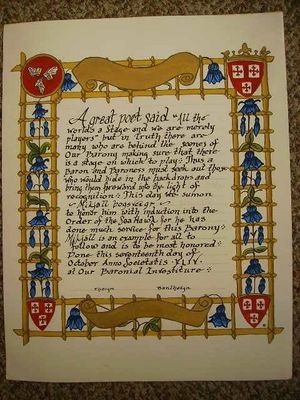 A great poet said "All the
world's a Stage and we are merely
players" but in Truth there are
many who are behind the scenes of
Our Barony making sure that there
is a stage on which to play: Thus a
Baron and Baroness must seek out those
who would hide in the backdrops and
bring them forward into the light of
recognition: This day we sumon
to honor him with induction into the
Order of the Sea Hawk for he has
done much service for this Barony
Mikjáll is an example for all to
follow and is to be most honored:
Done this seventeenth day of
October Anno Societatis XLIV
at Our Baronial Investiture: